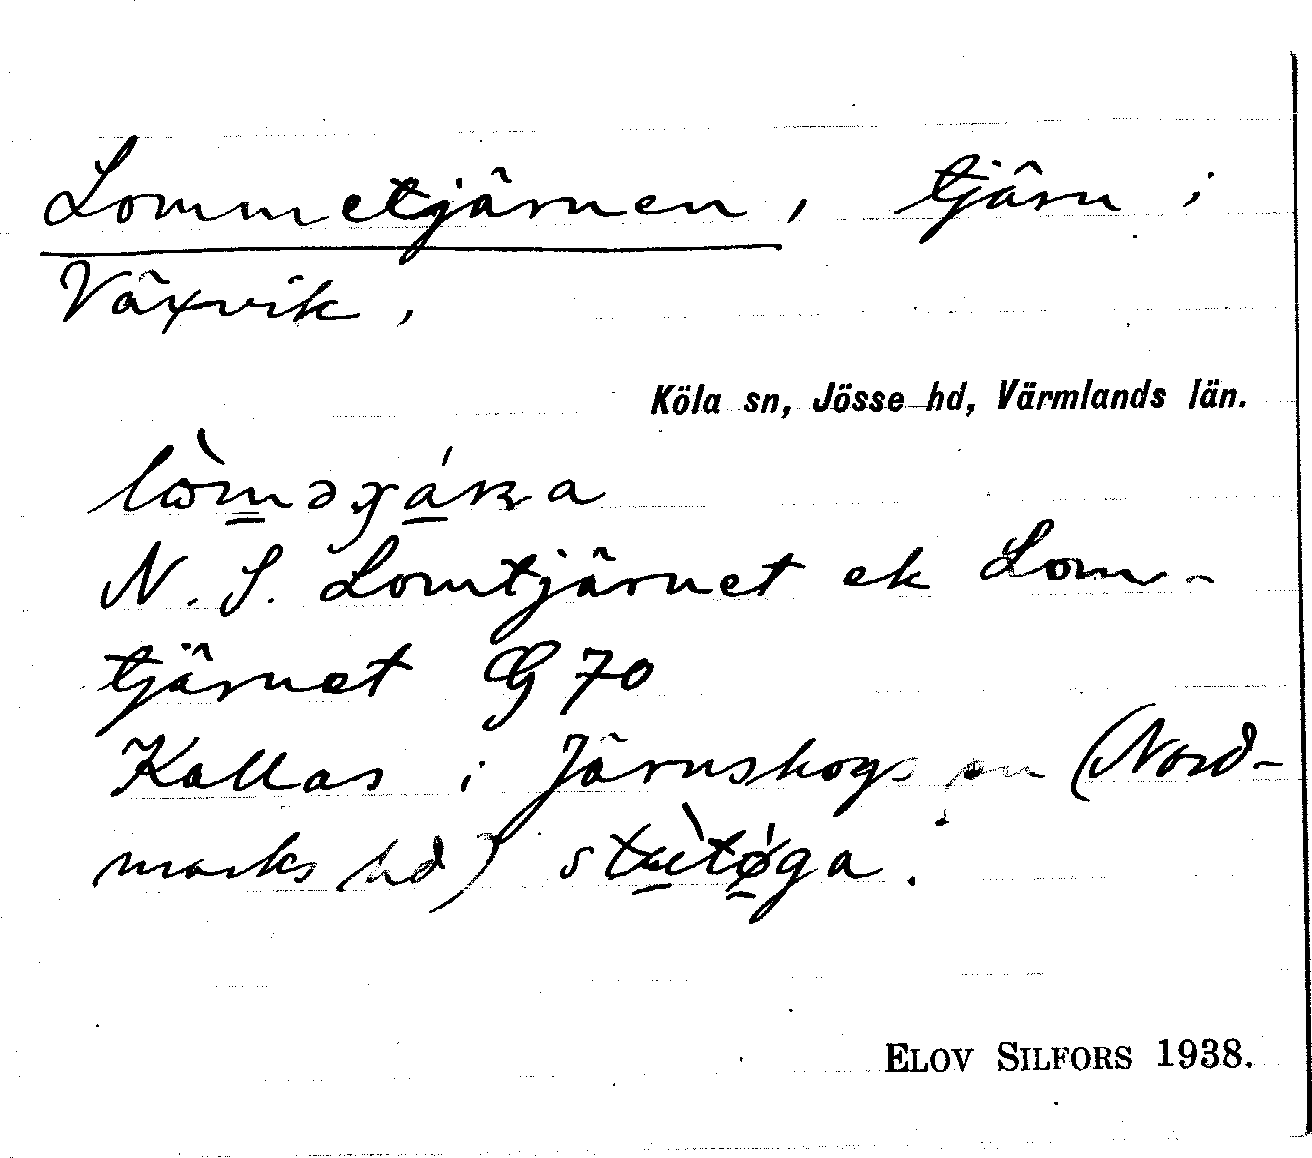 Lommetjärnen, tjärn i
Växvik,
Köla sn, Jösse hd, Värmlands län.
N. S. Lomtjärnet ek Lom-
tjärnet G 70
Kallas i Järnskogs sn (Nord-
marks hd)
ELOV SILFORS 1938.